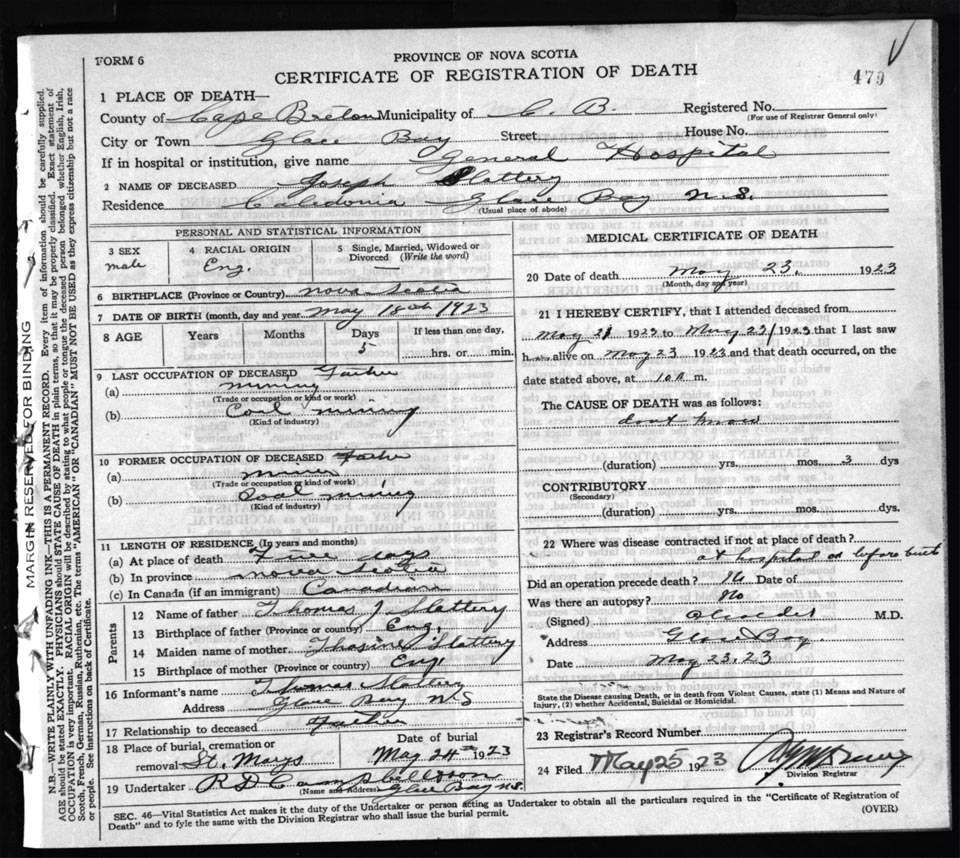 FORM 6
PROVINCE OF NOVA SCOTIA
CERTIFICATE OF REGISTRATION OF DEATH
479
1 PLACE OF DEATH—
County of Cape Breton Municipality of C. B. Registered No.
(For use of Registrar General only)
City or Town Glace Bay Street House No.
If in hospital or institution, give name General Hospital
2 NAME OF DECEASED Joseph Slattery
Residence Caledonia Glace Bay N.S.
(Usual place of abode)
PERSONAL AND STATISTICAL INFORMATION
3 SEX male
4 RACIAL ORIGIN Eng.
5 Single, Married, Widowed or Divorced (Write the word)
6 BIRTHPLACE (Province or Country) Nova Scotia
7 DATE OF BIRTH (month, day and year) May 18th 1923
8 AGE Years Months Days 5 If less than one day, hrs. or min.
9 LAST OCCUPATION OF DECEASED Father
(a) mining
(Trade or occupation or kind of work)
(b) Coal mining
(Kind of industry)
10 FORMER OCCUPATION OF DECEASED Father
(a) miner
(Trade or occupation or kind of work)
(b) Coal mining
(Kind of industry)
11 LENGTH OF RESIDENCE (In years and months)
(a) At place of death Five days
(b) In province Nova Scotia
(c) In Canada (if an immigrant) Canadian
Parents
12 Name of father Thomas J Slattery
13 Birthplace of father (Province or country) Eng.
14 Maiden name of mother Slattery
15 Birthplace of mother (Province or country) Eng.
16 Informant's name Thomas Slattery
Address Glace Bay N S
17 Relationship to deceased Father
18 Place of burial, cremation or removal St. Marys Date of burial May 24th 1923
19 Undertaker R D Campbell & Son
(Name and address) Glace Bay N.S.
MEDICAL CERTIFICATE OF DEATH
20 Date of death May 23. 1923
(Month, day and year)
21 I HEREBY CERTIFY, that I attended deceased from
May 21 1923 to May 23/1923 that I last saw
h alive on May 23 1923 and that death occurred, on the
date stated above, at 10 a. m.
The CAUSE OF DEATH was as follows:
dont know
(duration) yrs. mos. 3 dys
CONTRIBUTORY
(Secondary)
(duration) yrs. mos. dys.
22 Where was disease contracted if not at place of death?
at hospital or before birth
Did an operation precede death? No Date of
Was there an autopsy? No
(Signed) M.D.
Address Glace Bay
Date May 23. 23
State the Disease causing Death, or in death from Violent Causes, state (1) Means and Nature of Injury, (2) whether Accidental, Suicidal or Homicidal.
23 Registrar's Record Number
24 Filed May 25 1923
Division Registrar
SEC. 46—Vital Statistics Act makes it the duty of the Undertaker or person acting as Undertaker to obtain all the particulars required in the "Certificate of Registration of Death" and to fyle the same with the Division Registrar who shall issue the burial permit.
(OVER)
MARGIN RESERVED FOR BINDING
N.B.—WRITE PLAINLY WITH UNFADING INK—THIS IS A PERMANENT RECORD. Every item of information should be carefully supplied.
AGE should be stated EXACTLY. PHYSICIANS should STATE CAUSE OF DEATH in plain terms, so that it may be properly classified. Exact statement of
OCCUPATION is very important. RACIAL ORIGIN will be described by stating to what people or tongue the deceased person belonged whether English, Irish,
Scotch, French, German, Russian, Ruthenian, etc. The terms "AMERICAN" OR "CANADIAN" MUST NOT BE USED as they express citizenship but not a race
or people. See instructions on back of Certificate.